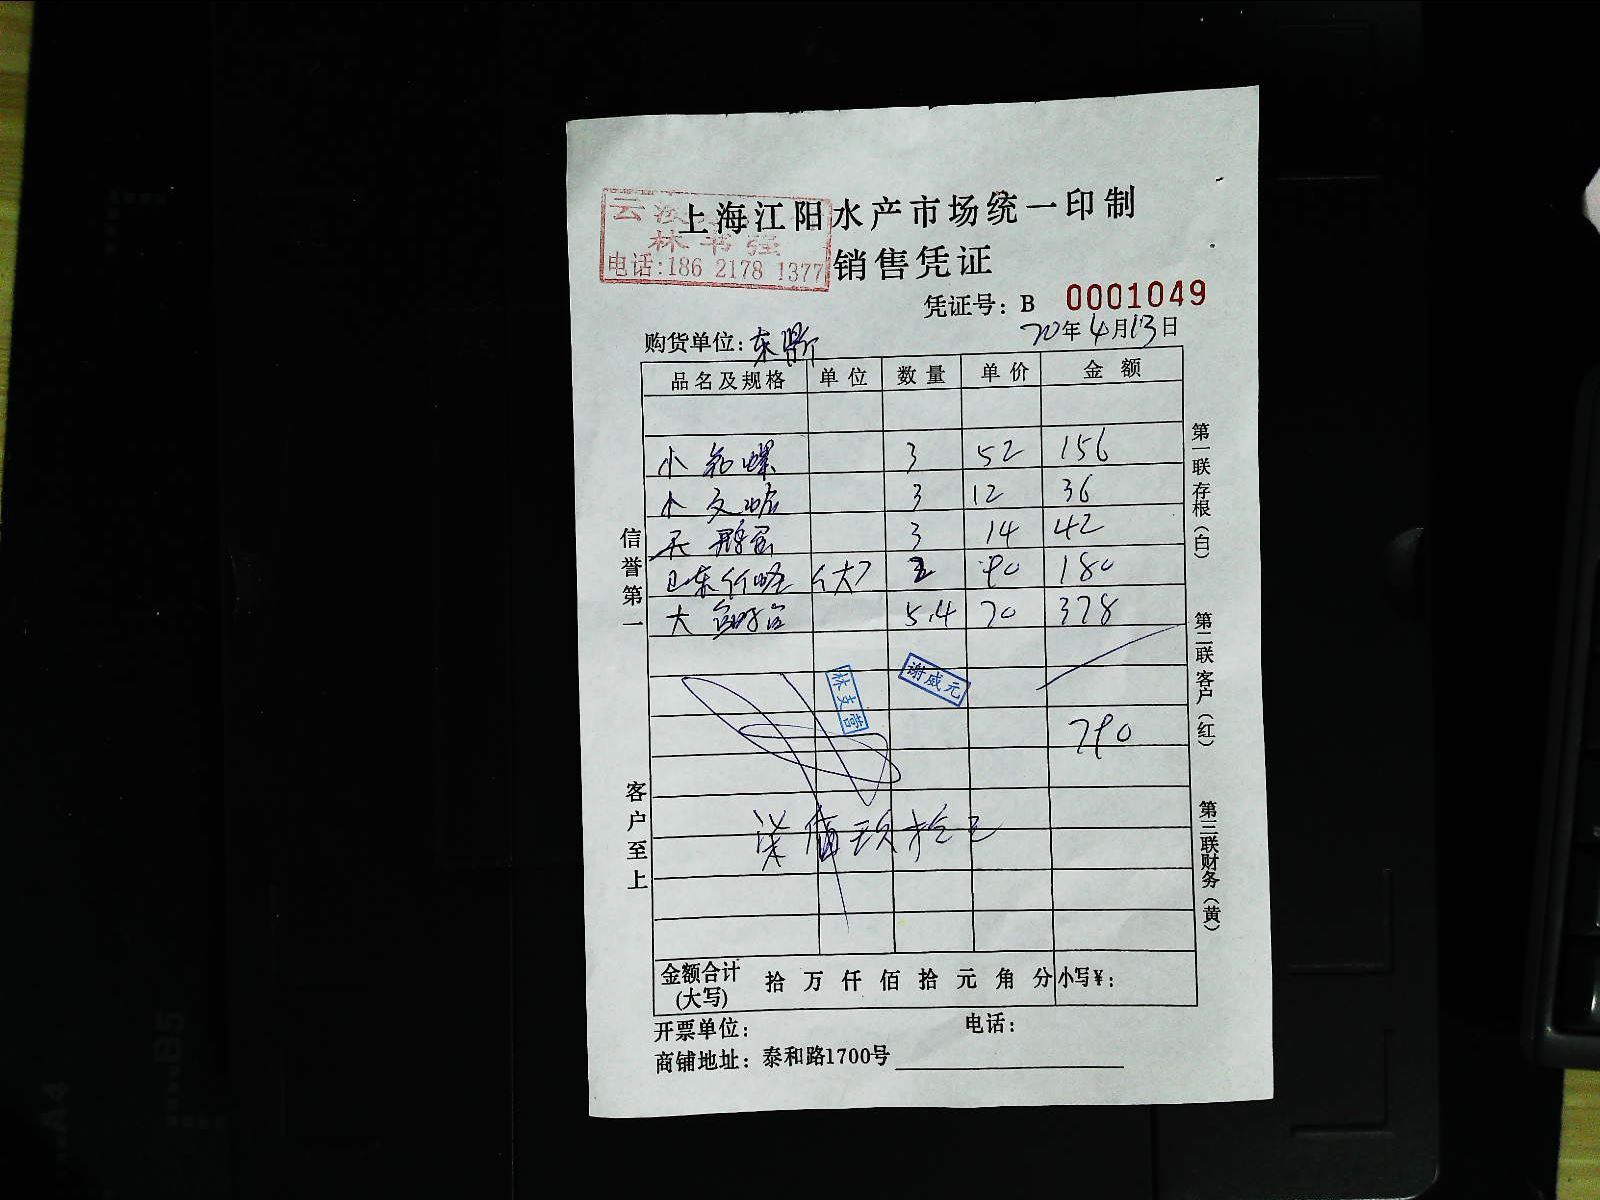 上海江阳水产市场统一印制
云
林书强
电话:186 2178 1377
销售凭证
凭证号: B 0001049
20年4月13日
购货单位:东
品名及规格 单位 数量 单价 金额
小 螺 3 52 156
小文蛤 3 12 36
天鹅蛋 3 14 42
山东竹蛏 (大) 2 90 180
大 5.4 70 378
林支营
谢威元
790
柒佰玖拾元
金额合计(大写) 拾 万 仟 佰 拾 元 角 分 小写¥:
开票单位: 电话:
商铺地址: 泰和路1700号
信誉第一
客户至上
第一联 存根(白)
第二联 客户(红)
第三联 财务(黄)